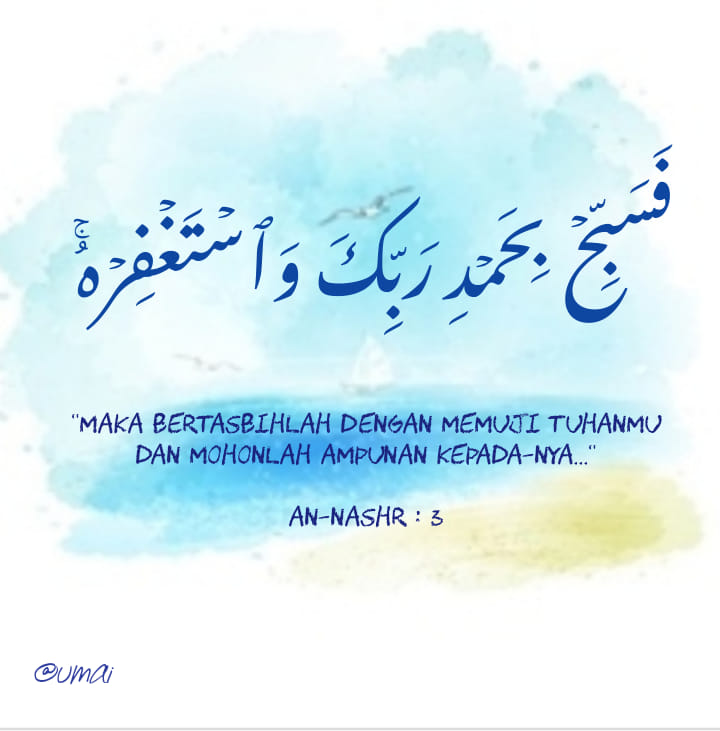 فَسَبِّحۡ بِحَمۡدِ رَبِّكَ وَٱسۡتَغۡفِرۡهُۚ
"MAKA BERTASBIHLAH DENGAN MEMUJI TUHANMU
DAN MOHONLAH AMPUNAN KEPADA-NYA..."
AN-NASHR : 3
@umai